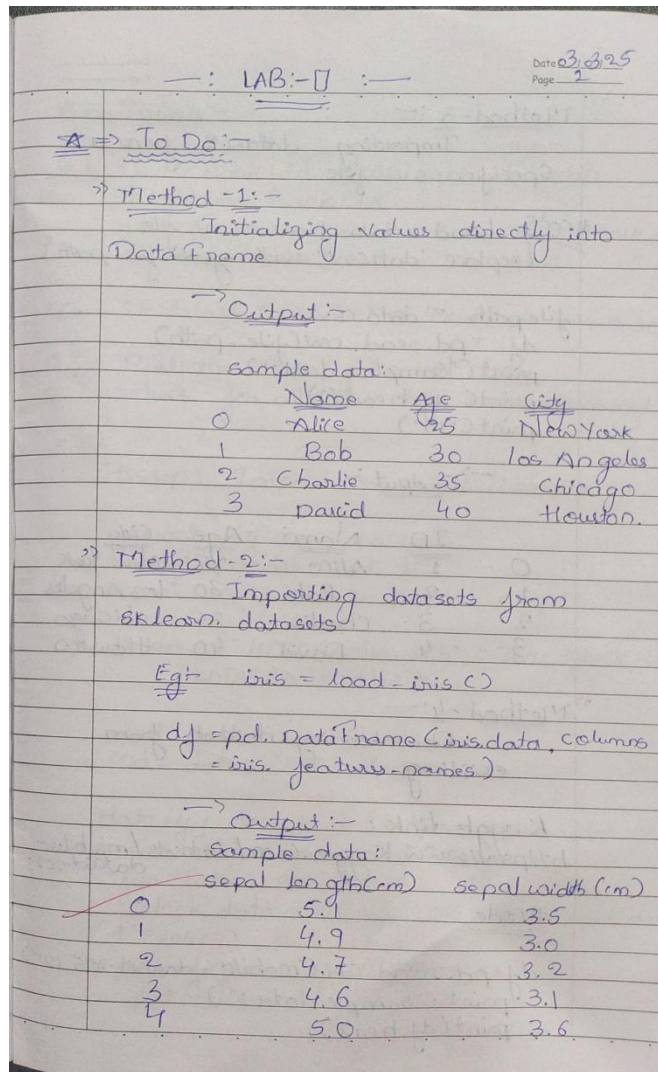 Date 03/03/25
Page 2
—: LAB:-0 :—
A => To Do:-
>> Method -1:-
Initializing values directly into
DataFrame
-> Output:-
sample data:
Name Age City
0 Alice 25 New York
1 Bob 30 los Angeles
2 Charlie 35 Chicago
3 David 40 Houston.
>> Method-2:-
Importing datasets from
sklearn. datasets
Eg:- iris = load_iris()
df = pd. DataFrame (iris.data, columns
= iris. feature_names)
-> Output:-
Sample data:
sepal length(cm) sepal width (cm)
0 5.1 3.5
1 4.9 3.0
2 4.7 3.2
3 4.6 3.1
4 5.0 3.6